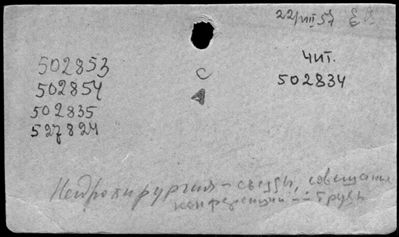 22/VIII 57
502853
502854
502835
527824
С
А
чит.
502834
Нейрохирургия – съезды, совещания
конференции – Труды